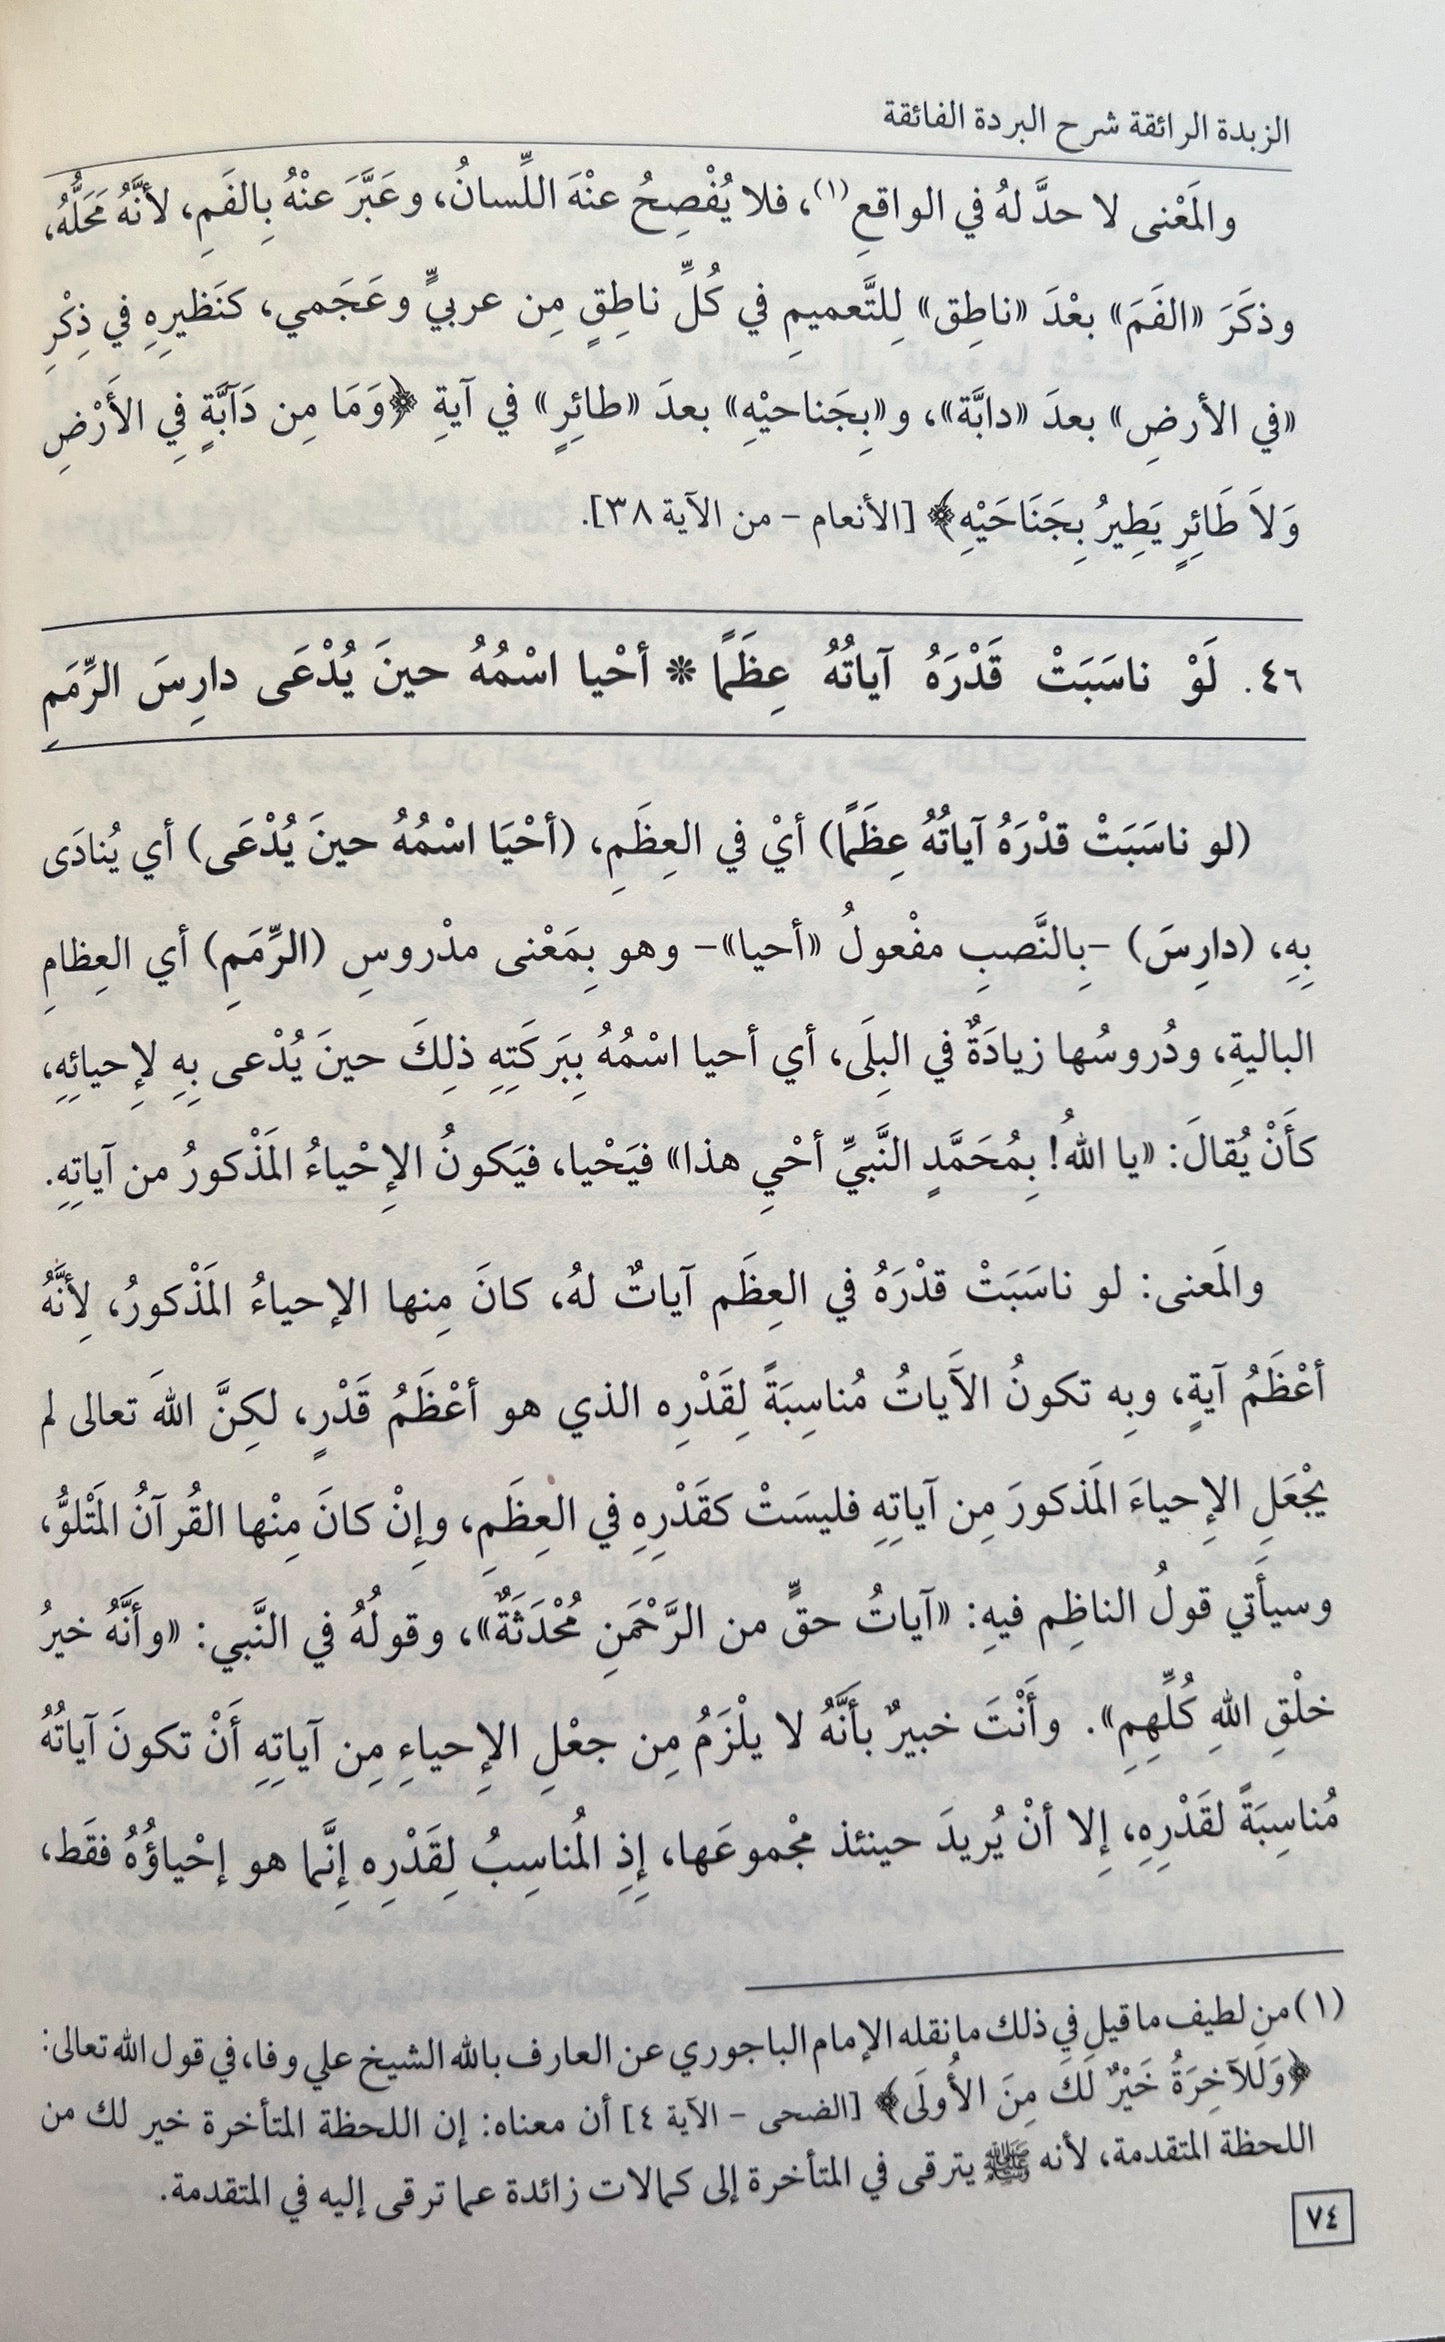 الزبدة الرائقة شرح البردة الفائقة
والمَعْنى لا حدَّ لهُ في الواقعِ(١)، فلا يُفْصِحُ عنْهَ اللِّسانُ، وعَبَّرَ عنْهُ بِالفَمِ، لأنَّهُ مَحَلُّهُ،
وذكَرَ «الفَمَ» بعْدَ «ناطِق» لِلتَّعميمِ في كُلِّ ناطِقٍ مِن عربيٍّ وعَجَمي، كنَظيرِهِ في ذِكْرِ
«في الأرضِ» بعدَ «دابَّة»، و«بِجَناحيْهِ» بعدَ «طائِرٍ» في آيةِ ﴿وَمَا مِن دَآبَّةٍ فِي الأَرْضِ
وَلاَ طَائِرٍ يَطِيرُ بِجَنَاحَيْهِ﴾ [الأنعام – من الآية ٣٨].
٤٦. لَوْ ناسَبَتْ قَدْرَهُ آياتُهُ عِظَمًا * أحْيا اسْمُهُ حينَ يُدْعَى دارِسَ الرِّمَمِ
(لو ناسَبَتْ قدْرَهُ آياتُهُ عِظَمًا) أيْ في العِظَمِ، (أحْيَا اسْمُهُ حينَ يُدْعَى) أي يُنادَى
بِهِ، (دارِسَ) –بِالنَّصبِ مفْعولُ «أحيا»– وهو بِمَعْنى مدْروسِ (الرِّمَمِ) أي العِظامِ
الباليةِ، ودُروسُها زيادَةٌ في البِلَى، أي أحيا اسْمُهُ بِبَركَتِهِ ذلِكَ حينَ يُدْعى بِهِ لإِحيائِهِ،
كأَنْ يُقالَ: «يا اللهُ! بِمُحَمَّدٍ النَّبيِّ أحْيِ هذا» فيَحْيا، فيَكونُ الإِحْياءُ المَذْكورُ من آياتِهِ.
والمَعنى: لو ناسَبَتْ قدْرَهُ في العِظَم آياتٌ لهُ، كانَ مِنها الإحياءُ المَذْكورُ، لِأنَّهُ
أعْظَمُ آيةٍ، وبِه تكونُ الآَياتُ مُناسِبَةً لِقَدْرِه الذي هو أعْظَمُ قَدْرٍ، لكِنَّ اللهَ تعالى لم
يجْعَلِ الإِحياءَ المَذكورَ مِن آياتِهِ فليسَتْ كقَدْرِهِ في العِظَمِ، وإِنْ كانَ مِنْها القُرآنُ المَتْلوُّ،
وسيأَتي قولُ الناظِم فيهِ: «آياتُ حقٍّ من الرَّحْمَنِ مُحْدَثَةٌ»، وقولُهُ في النَّبي: «وأنَّهُ خيرُ
خلْقِ اللهِ كُلِّهِمِ». وأَنْتَ خبيرٌ بأَنَّهُ لا يلْزَمُ مِن جعْلِ الإِحياءِ مِن آياتِهِ أَنْ تكونَ آياتُهُ
مُناسِبَةً لقَدْرِهِ، إِلا أنْ يُريدَ حينئذ مجْموعَها، إِذِ المُناسِبُ لِقَدْرِه إِنَّما هو إحْياؤُهُ فقَط،
(١) من لطيف ما قيل في ذلك ما نقله الإمام الباجوري عن العارف بالله الشيخ علي وفا، في قول الله تعالى:
﴿وَلَلآخِرَةُ خَيْرٌ لَكَ مِنَ الأُولَى﴾ [الضحى – الآية ٤] أن معناه: إن اللحظة المتأخرة خير لك من
اللحظة المتقدمة، لأنه ﷺ يترقى في المتأخرة إلى كمالات زائدة عما ترقى إليه في المتقدمة.
٧٤